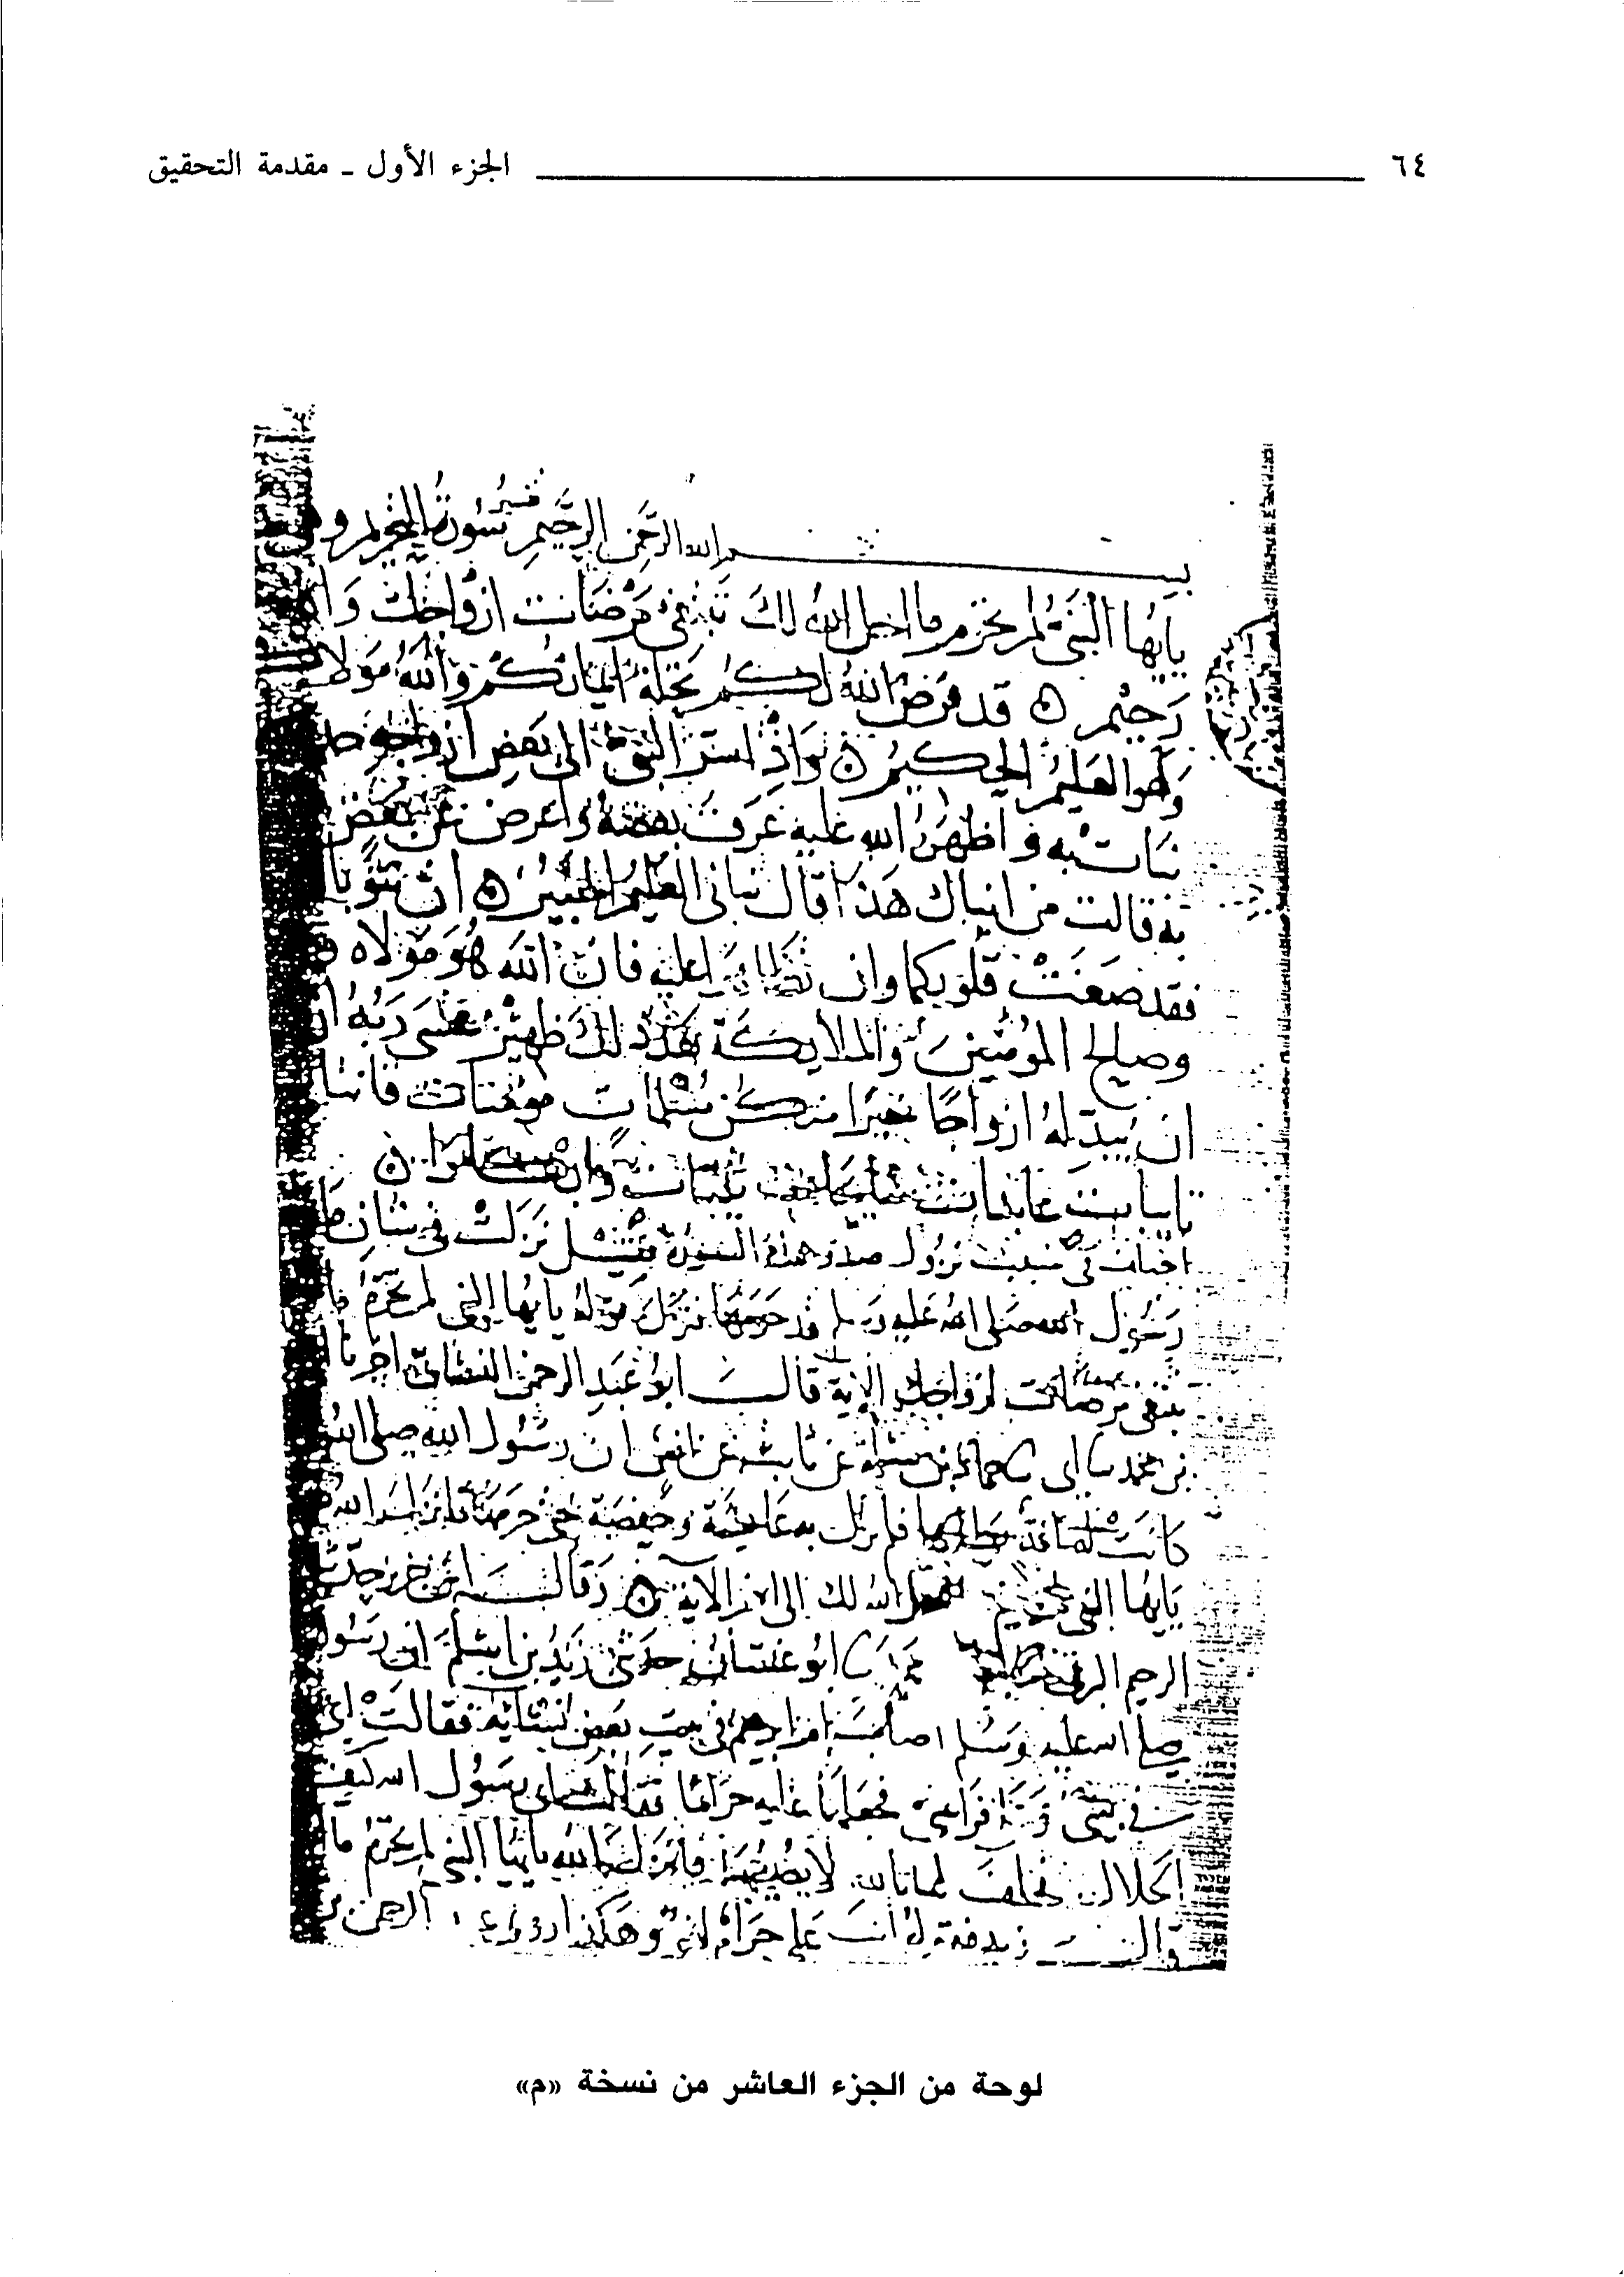 ٦٤ الجزء الأول ـ مقدمة التحقيق
بسم الله الرحمن الرحيم تفسير سورة التحريم وهي
يايها النبي لم تحرم ما احل الله لك تبتغي مرضات ازواجك والله
رحيم ۝ قد فرض الله لكم تحلة ايمانكم والله مولاكم
وهو العليم الحكيم ۝ واذ اسر النبي الى بعض ازواجه حديثا
نبات به واظهره الله عليه عرف بعضه واعرض عن بعض
به قالت من انباك هذا قال نباني العليم الخبير ۝ ان تتوبا
فقد صغت قلوبكما وان تظاهرا عليه فان الله هو مولاه
وصالح المؤمنين والملايكة بعد ذلك ظهير عسى ربه ان
ان يبدله ازواجا خيرا منكن مسلمات مؤمنات قانتات
تايبات عابدات سايحات ثيبات وابكارا ۝
اختلف في سبب نزول صدر هذه السورة فقيل نزلت في شان
رسول الله صلى الله عليه وسلم قد حرمها فنزل قوله يايها النبي لم تحرم ما
تبتغي مرضات ازواجك الاية قال ابو عبد الرحمن النسائي اخبرنا
بن محمد ابي حماد بن سلمة عن ثابت عن انس ان رسول الله صلى الله
كانت له امة يطاها فلم تزل به عايشة وحفصة حتى حرمها فانزل الله
يايها النبي لم تحرم ما احل الله لك الى اخر الاية ۝ وقال ابن جرير حدثني
الرحيم البرقي ابو غسان حدثني زيد بن اسلم ان رسول
صلى الله عليه وسلم اصاب ام ابراهيم في بيت بعض نسايه فقالت اي
في بيتي وعلى فراشي فجعلها عليه حراما فقالت اي رسول الله كيف
الحلال فحلف لها بالله لا يصيبها فانزل الله يايها النبي لم تحرم ما
قال زيد فقوله انت علي حرام لغو وهكذا روى عبد الرحمن بن
لوحة من الجزء العاشر من نسخة «م»